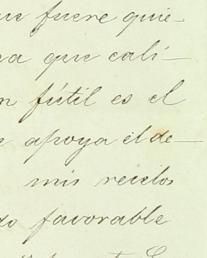 fuere quie-
que cali-
fútil es el
apoya el de-
mis recelos
favorable